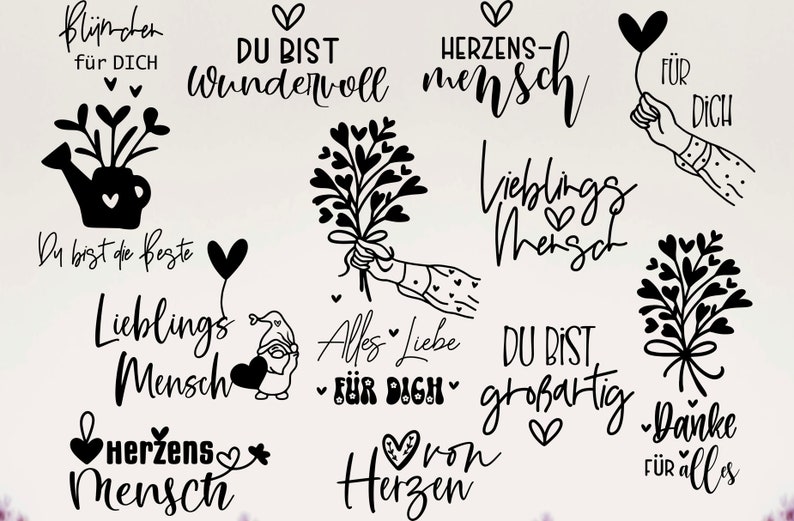 Blümchen
für DICH
DU BIST
wundervoll
HERZENS-
mensch
FÜR
DICH
Du bist die Beste
Lieblings
Mensch
Lieblings
Mensch
Alles Liebe
FÜR DICH
DU BIST
großartig
Danke
FÜR alles
Herzens
Mensch
von
Herzen